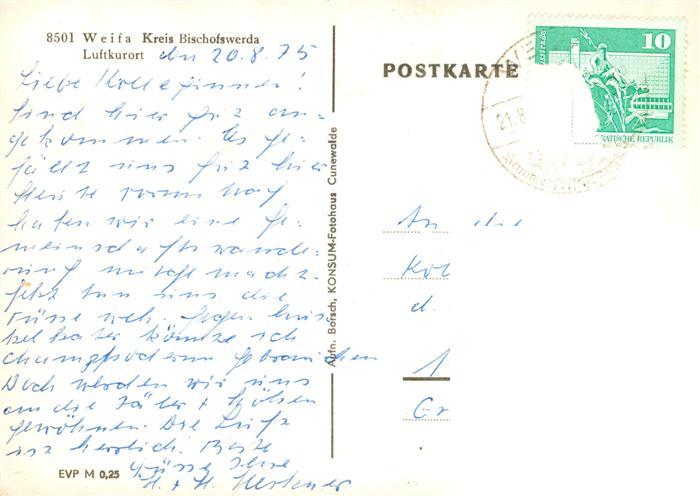 8501 Weifa Kreis Bischofswerda
Luftkurort den 20.8.75
Liebe Kolleginnen!
Sind hier gut an-
gekommen. Es ge-
fällt uns gut hier
Heute
haben wir eine Ge-
meinschaftswande-
rung mitgemacht.
Jetzt tun uns die
Füsse weh. Gegen Mus-
kelkater könnte ich
gebrauchen
Doch werden wir uns
an die Täler + Höhen
gewöhnen. Die Luft
ist herrlich. Beste
Grüsse Ihre
H. + H.
EVP M 0,25
Aufn. Borsch, KONSUM-Fotohaus Cunewalde
POSTKARTE
10
ATISCHE REPUBLIK
21.8
An die
Kol
d.
1
Gr